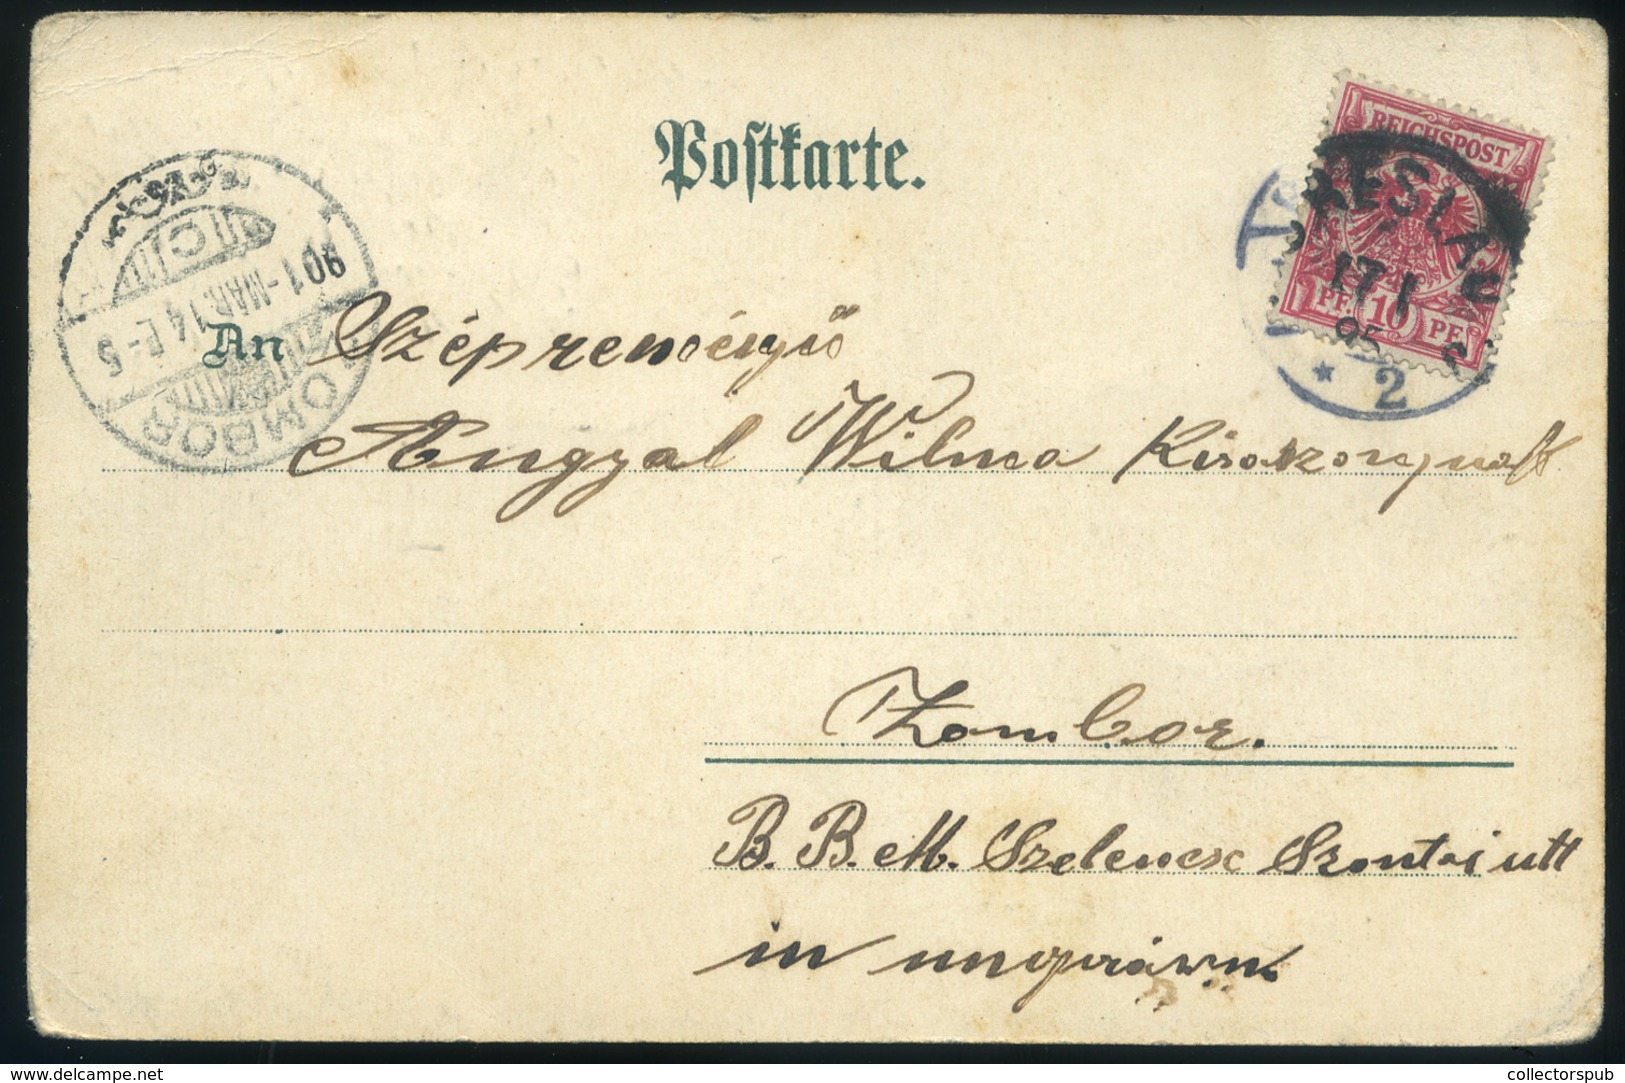 Postkarte.
REICHSPOST
BRESLAU
17 1
95
PF 10 PF
* 2
901-MAR.14 E-5
C
ZOMBOR
An Szépreményű
Angyal Wilma
Zombor.
B. B. M. Szelencse Szontai utt
in
www.delcampe.net
collectorspub